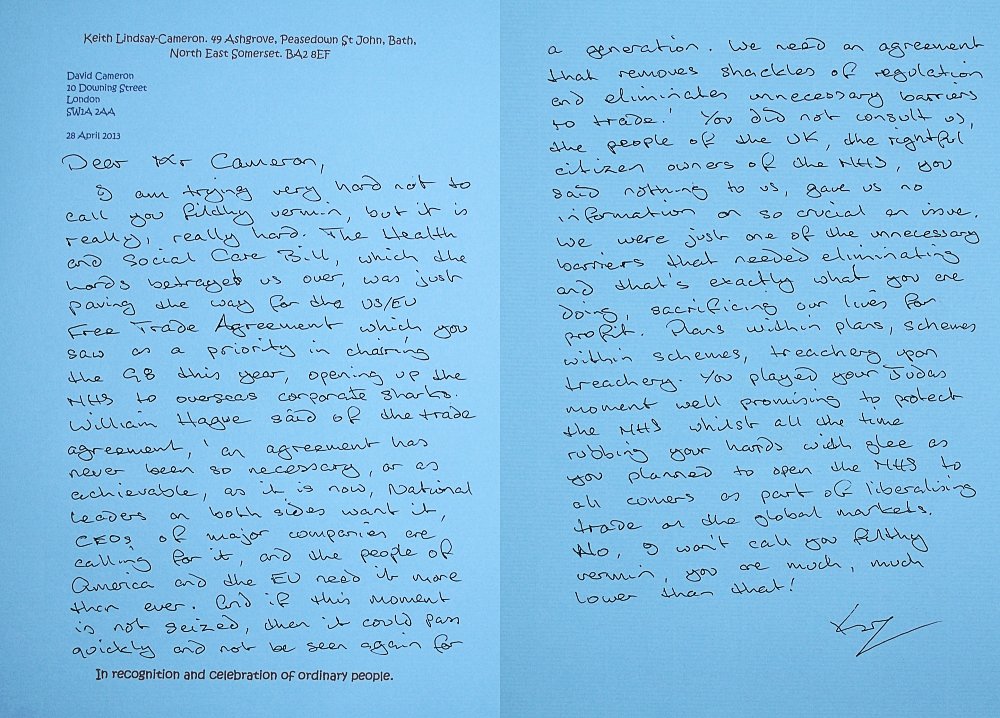 Keith Lindsay-Cameron. 49 Ashgrove, Peasedown St John, Bath,
North East Somerset. BA2 8EF
David Cameron
10 Downing Street
London
SW1A 2AA
28 April 2013
Dear Mr Cameron,
I am trying very hard not to
call you filthy vermin, but it is
really, really hard. The Health
and Social Care Bill, which the
lords betrayed us over, was just
paving the way for the US/EU
Free Trade Agreement which you
saw as a priority in chairing
the G8 this year, opening up the
NHS to overseas corporate sharks.
William Hague said of the trade
agreement, 'an agreement has
never been so necessary, or as
achievable, as it is now, National
leaders on both sides want it,
CEOs of major companies are
calling for it, and the people of
America and the EU need it more
than ever. And if this moment
is not seized, then it could pass
quickly and not be seen again for
In recognition and celebration of ordinary people.
a generation. We need an agreement
that removes shackles of regulation
and eliminates unnecessary barriers
to trade.' You did not consult us,
the people of the UK, the rightful
citizen owners of the NHS, you
said nothing to us, gave us no
information on so crucial an issue.
We were just one of the unnecessary
barriers that needed eliminating
and that's exactly what you are
doing, sacrificing our lives for
profit. Plans within plans, schemes
within schemes, treachery upon
treachery. You played your Judas
moment well promising to protect
the NHS whilst all the time
rubbing your hands with glee as
you planned to open the NHS to
all comers as part of liberalising
trade on the global markets.
No, I won't call you filthy
vermin, you are much, much
lower than that!